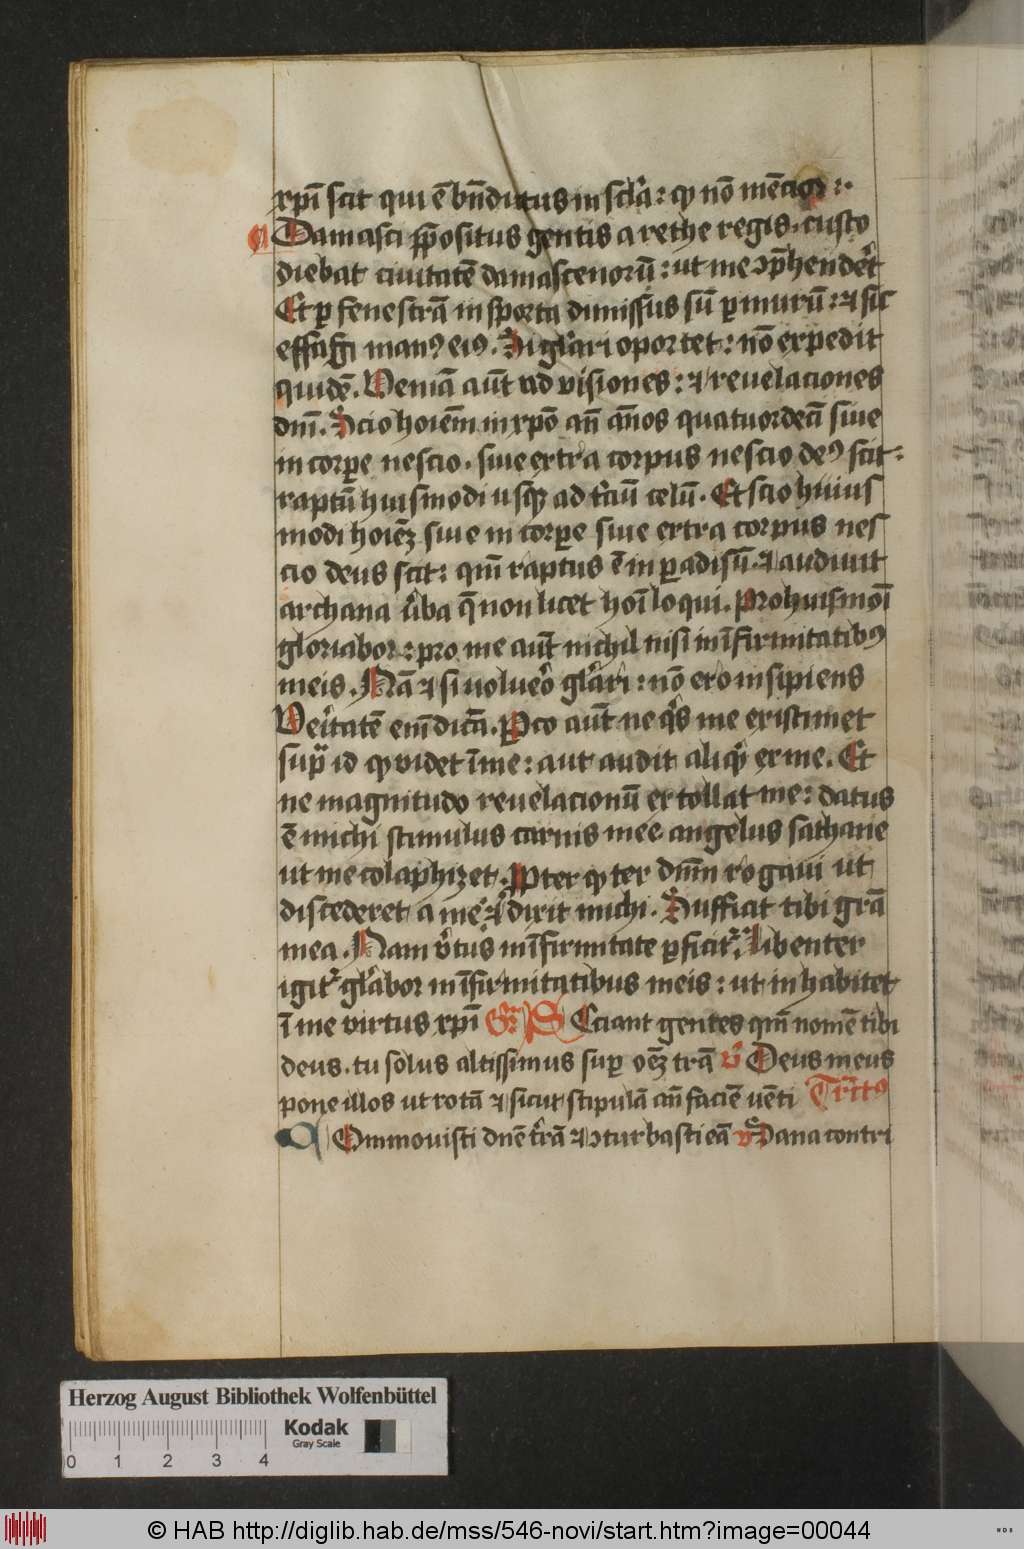 xpī scit qui ē bn̄dictus in scl̄a: qꝫ nō mēcior:·
Damasci ꝓpositus gentis arethe regis· custo
diebat ciuitatē damascenorū: ut me ↄp̄henderꝫ̄t
Et ꝑ fenestrā in sporta dimissus sū ꝑ murū: ⁊ sic
effugi manꝰ eiꝰ. Si gl̄ari oportet: nō expedit
quidē. Veniā aūt ad visiones: ⁊ reuelaciones
dn̄i. Scio hoiēm in xp̄o an̄ an̄os quatuordecī siue
in corꝑe nescio· siue extra corpus nescio deꝰ scit:
raptū huismodi usqꝫ ad tciū celū. Et scio huius
modi hoiēꝫ siue in corꝑe siue extra corpus nes
cio deus scit: qm̄ raptus ē in ꝑadisū· ⁊ audiuit
archana v̄ba q̄ non licet hoī loqui. Pro huiꝰmōi
gloriabor: pro me aūt nichil nisi in īfirmitatibꝰ
meis. Nā ⁊ si voluero gl̄ari: nō ero insipiens
Veritatē em̄ dicā. Parco aūt ne qͥs me existimet
supͣ id qꝫ videt ī me: aut audit aliqͥd ex me. Et
ne magnitudo reuelacionū extollat me: datus
ē michi stimulus carnis mee angelus sathane
ut me colaphizet. Ꝓpter qꝫ ter dn̄m rogaui ut
discederet a me· ⁊ dixit michi. Sufficit tibi gr̄a
mea. Nam v̄tus in īfirmitate ꝑficitͬ. Libenter
igitͬ gl̄abor in īfirmitatibus meis: ut inhabitet
ī me virtus xpī Gr̄ Sciant gentes qm̄ nomē tibi
deus· tu solus altissimus suꝑ oēꝫ trā v̄ Deus meus
pone illos ut rotā ⁊ sicut stipulā an̄ faciē vēti Tr̄ctꝰ
Commouisti dn̄e t̄rā ⁊ ↄturbasti eā v̄ Sana contri
Herzog August Bibliothek Wolfenbüttel
Kodak
Gray Scale
0 1 2 3 4
© HAB http://diglib.hab.de/mss/546-novi/start.htm?image=00044